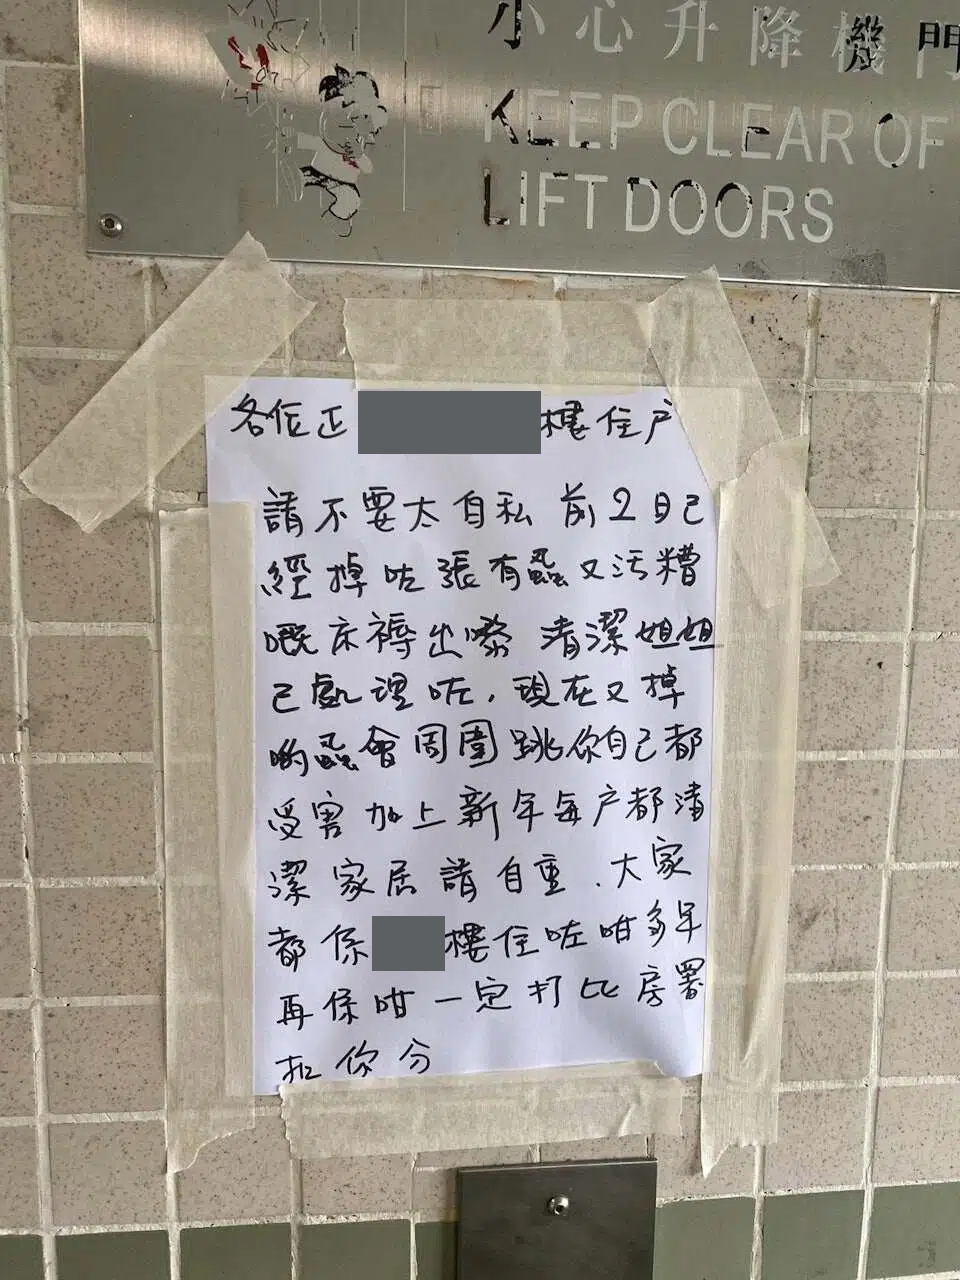 小心升降機門
KEEP CLEAR OF
LIFT DOORS
各位正
樓住户
請不要太自私 前2日已
經掉咗張有蝨又污糟
嘅床褥出嚟 清潔姐姐
已處理咗，現在又掉
啲蝨會周圍跳你自己都
受害 加上新年每户都清
潔家居請自重．大家
都係
樓住咗咁多年
再係咁一定打比房署
扣你分